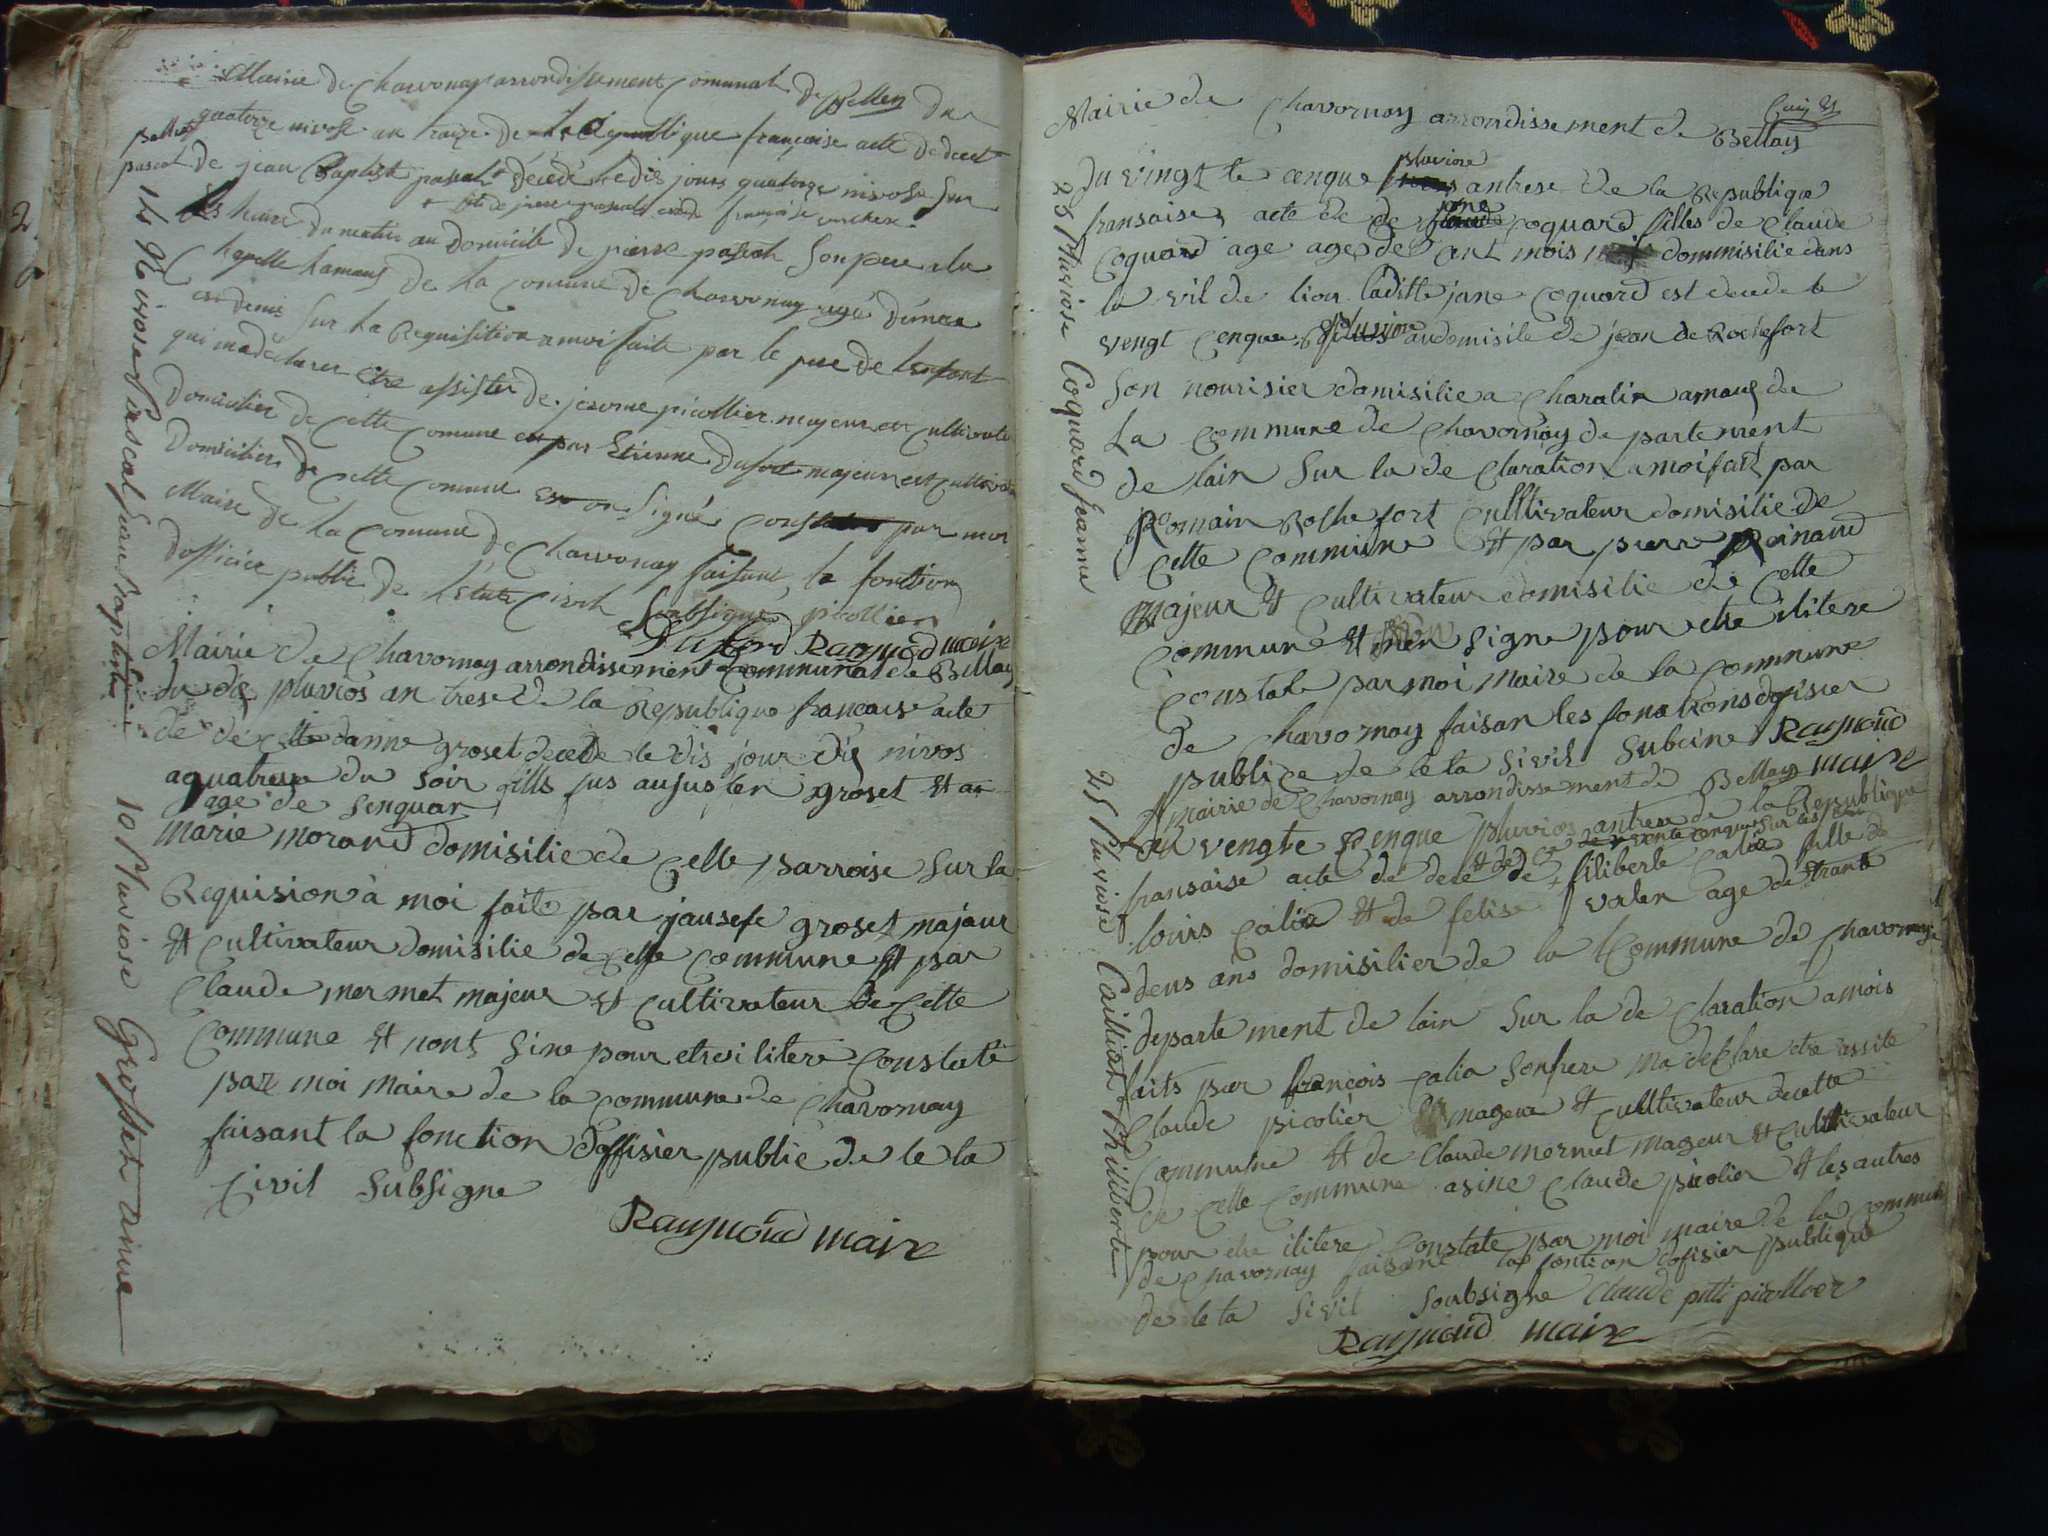 Mairie de Chavornay arrondissement Comunal de Belley du
quatorze nivose an traize de la Republique françoise acte de deces
de jean Baptiste pascal décédé le dis jours quatorze nivose sur
les huire du matin au domicile de pierre pascal son pere du
+ fils de pierre pascal et de françoise
Chapelle hamaus de la Comune de Chavornay agé d'un an
et demis sur la Requisition a moi faite par le pere de lenfant
qui ma déclarer etre assister de jerome picollier majeur et cultivateur
domicilier de cette Comune et par Etienne Dufort majeur est cultivateur
domicilier de cette Comune et on signé Constater par moi
Maire de la Comune de Chavornay faisant la fonction
dofficier public de l'état Civil soussigné picollier
Dufford Raymond maire
14 Nivose Pascal Jean Baptiste
Mairie de Chavornay arrondissement Communal de Bellay
du dix pluvios an trese de la Republique francaise acte
de de danne groset decede le dis jour dis nivos
a quatreure du soir fills fus aujusten groset et
age de senquan
marie morand domisilie de cette parroise sur la
Requision à moi faite par jausefe groset majeur
et cultivateur domisilie de cette commune et par
Claude mermet majeur et cultivateur de cette
Commune et nont sine pour etre ilitere constaté
par moi maire de la commune de Chavornay
faisant la fonction d'offisier public de le la
Civil subsigne
Raymond maire
10 Pluviose Grosset anne
Mairie de Chavornay arrondissement de Bellay
du vingt te cenque pluviose antrese de la Republique
fransaise, acte de de jane coquard filles de Claude
Coquard age age de mois dommisilie dans
la vil de lion laditte jane coquard est decede le
vengt cenque pluviose audomisile de jean de Rochefort
son nourisier domisilie a Charalin amaus de
La Commune de Chavornay departement
de lain sur la de Claration a moi fait par
Romain Roshefort Cultivateur domisilie de
Cette Commune et par pierre Reinaud
Majeur et Cultivateur domisilie de Cette
Commune et nen signe pour etre ilitere
Constate par moi Maire de la Commune
de Chavornay faisan les fonctions dofisier
publice de le ta sivil subcine Raymond
maire
25 Pluviose Coquard Jeanne
Mairie de Chavornay arrondissement de Bellay
du vengte senque pluvios antrese de la Republique
fransaise acte de dece de filiberte Calia fille de
louis Calia et de felise valen age de trante
deus ans domisilier de la Commune de Chavornay
departement de lain sur la de Claration a mois
faits par françois Calia son frere ma declare etre assite
Claude picolier mageur et Cultivateur de cette
Commune et de Claude mermet mageur et Cultivateur
de Cette Commune a sine Claude picolier et les autres
pour etre ilitere Constate par moi maire de la commune
de Chavornay faisant la fontion dofisier publique
de le ta sivil soubsigne Claude petit picollier
Raymond maire
25 Pluviose Cailliat Philiberte